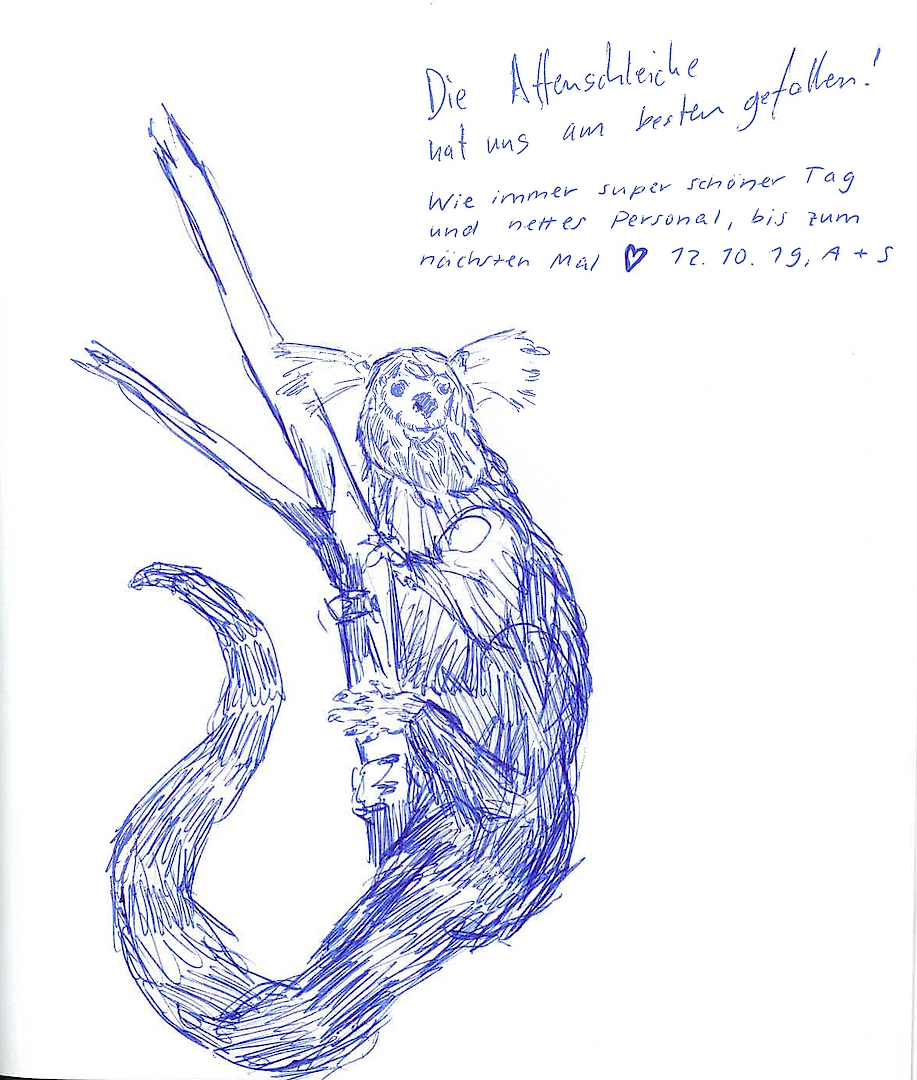 Die Affenschleiche
hat uns am besten gefallen!
Wie immer super schöner Tag
und nettes Personal, bis zum
nächsten Mal ♥ 12.10.19, A + S